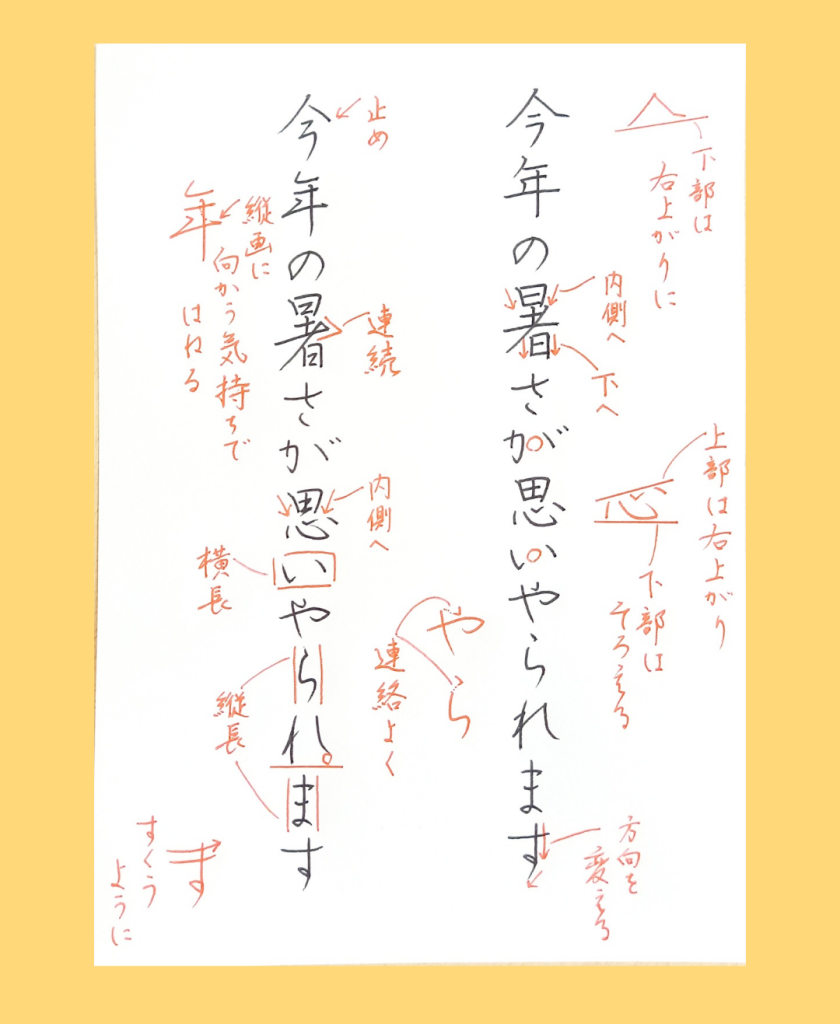 下部は
右上がりに
今年の暑さが思いやられます
内側へ
下へ
上部は右上がり
心
下部は
そろえる
方向を
変える
や
ら
連絡よく
今年の暑さが思いやられます
止め
連続
内側へ
年
縦画に
向かう気持ちで
はねる
横長
縦長
す
すくう
ように